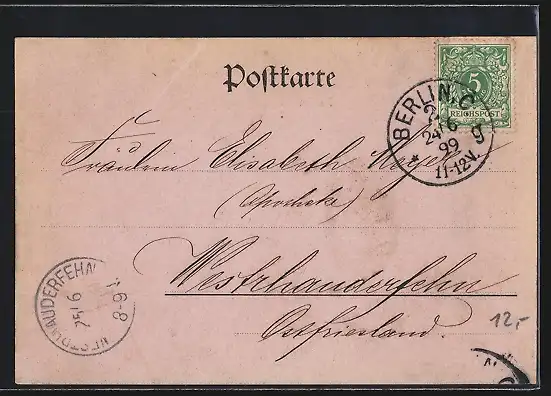 Postkarte
5
REICHSPOST
BERLIN, C
24/6
99
11-12V.
* g
Fräulein Elisabeth
(Apotheke)
Westrhauderfehn
Ostfriesland.
WESTRHAUDERFEHN
25/6
8-9
12,-